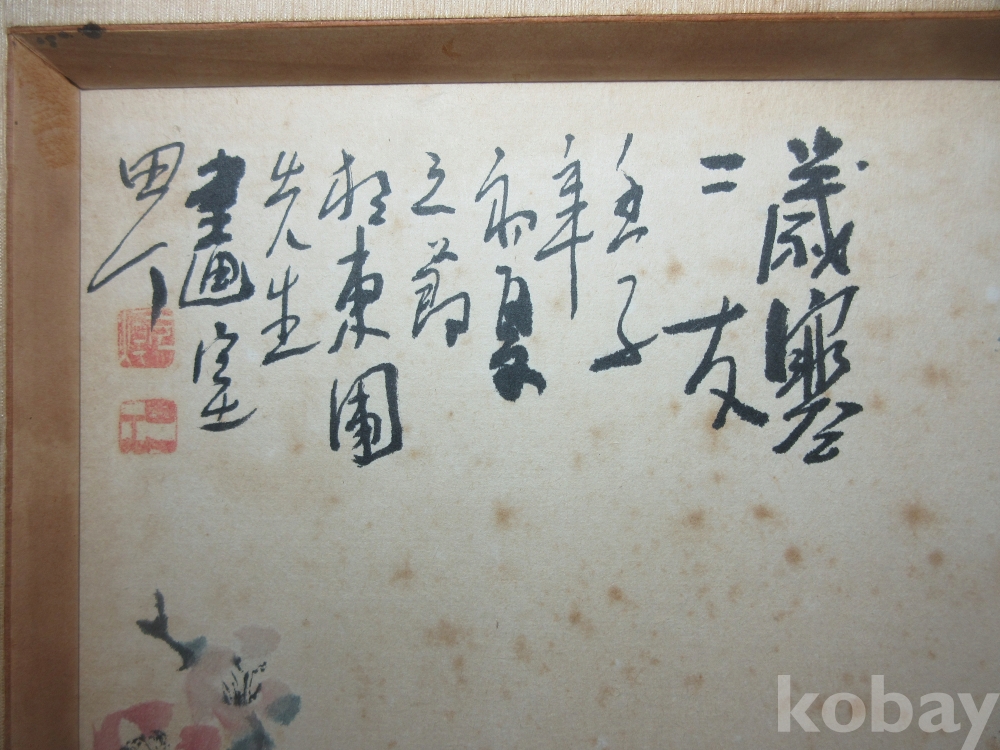 歲寒
二友
壬子
年
初夏
之節
於東園
先生
畫室
kobay